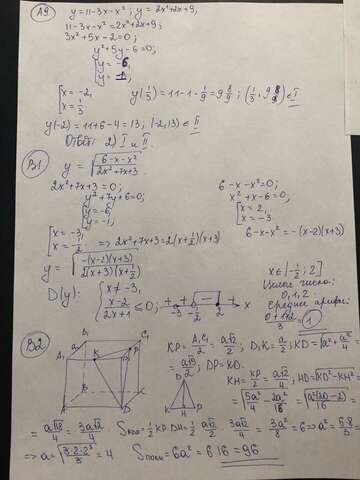 A9 y=11-3x-x²; y=2x²+2x+9;
11-3x-x²=2x²+2x+9;
3x²+5x-2=0;
y²+5y-6=0;
[y=-6,
y=1;
[x=-2,
x=1/3
y(1/3)=11-1-1/9=9 8/9; (1/3, 9 8/9)∈I
y(-2)=11+6-4=13; (-2,13)∈II
Ответ: 2) I и II.
B1 y=√((6-x-x²)/(2x²+7x+3))
2x²+7x+3=0;
y²+7y+6=0;
[y=-6,
y=-1;
[x=-3,
x=-1/2 => 2x²+7x+3=2(x+1/2)(x+3)
6-x-x²=0;
x²+x-6=0;
[x=2,
x=-3
6-x-x²=-(x-2)(x+3)
y=√(-(x-2)(x+3)/(2(x+3)(x+1/2)))
D(y): {x≠-3,
(x-2)/(2x+1)≤0;
+ + - +
-3 -1/2 2 x
x∈(-1/2; 2]
Целые числа:
0,1,2
Среднее арифм:
(0+1+2)/3=1
B2
B₁ C₁ A₁ K P D₁ B C A D
KP=A₁C₁/2=a√2/2; D₁K=a/2; KD=√(a²+a²/4)
=a√5/2; DP=KD.
D K H P
KH=KP/2=a√2/4; HD=√(KD²-KH²)=
=√(5a²/4-2a²/16)=√(a²(20-2)/16)
=a√18/4=3a√2/4
S_KDP=1/2 KP·DH=1/2·a√2/2·3a√2/4=3a²/8=6=>a²=6·8/3
=>a=√(3·2·2³/3)=4 S_полн=6a²=6·16=96